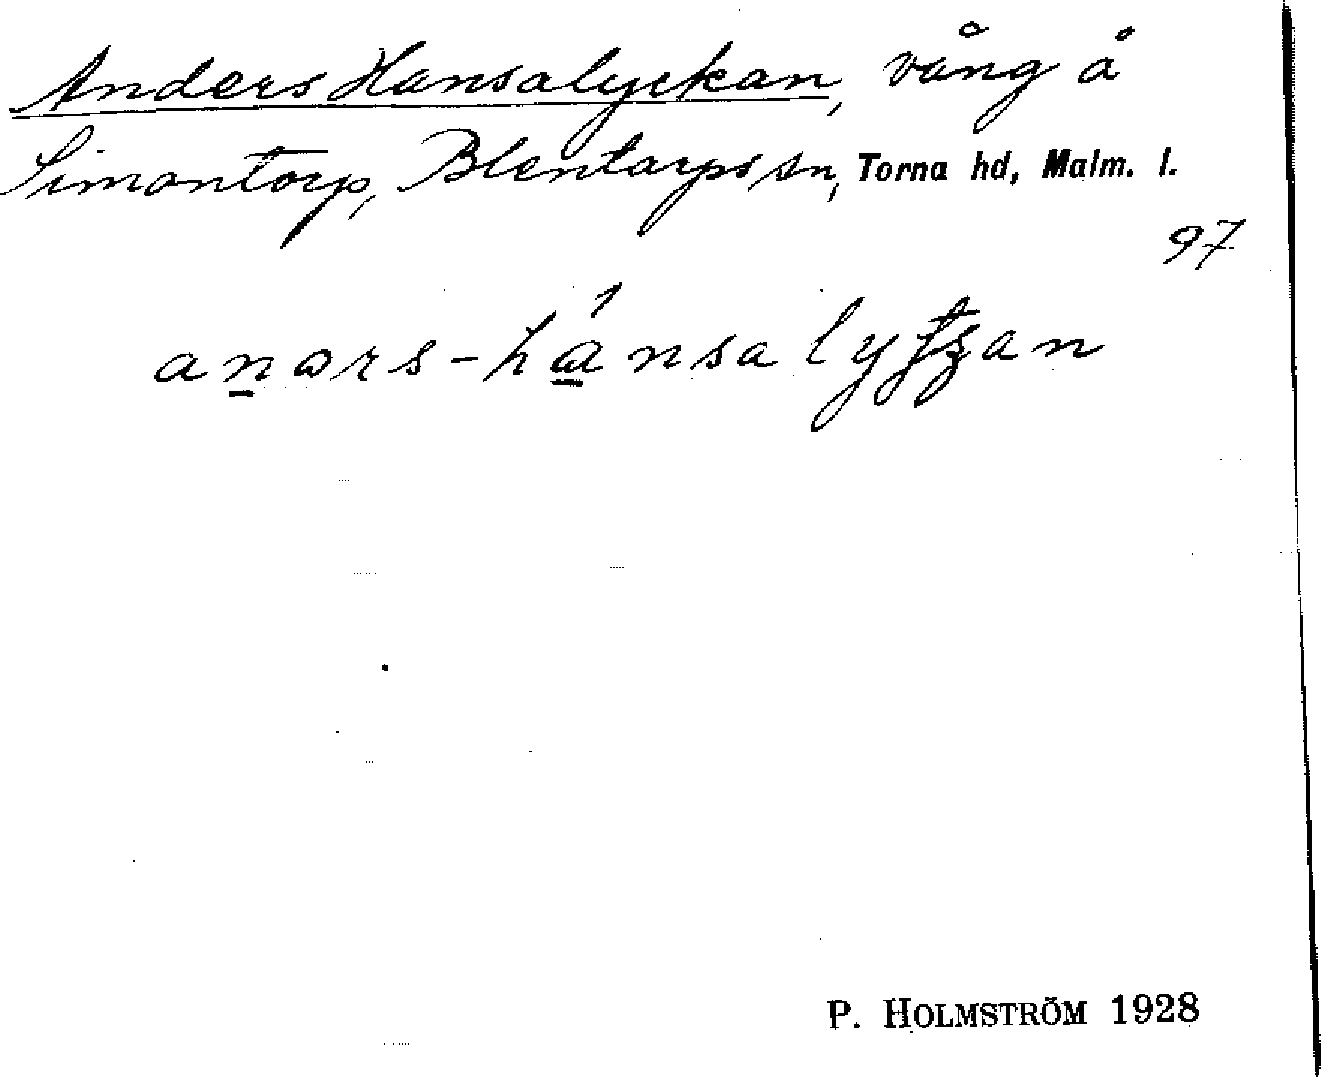 Anders Hansalyckan, vång å
Simontorp, Blentarps sn, Torna hd, Malm. l.
97
P. HOLMSTRÖM 1928